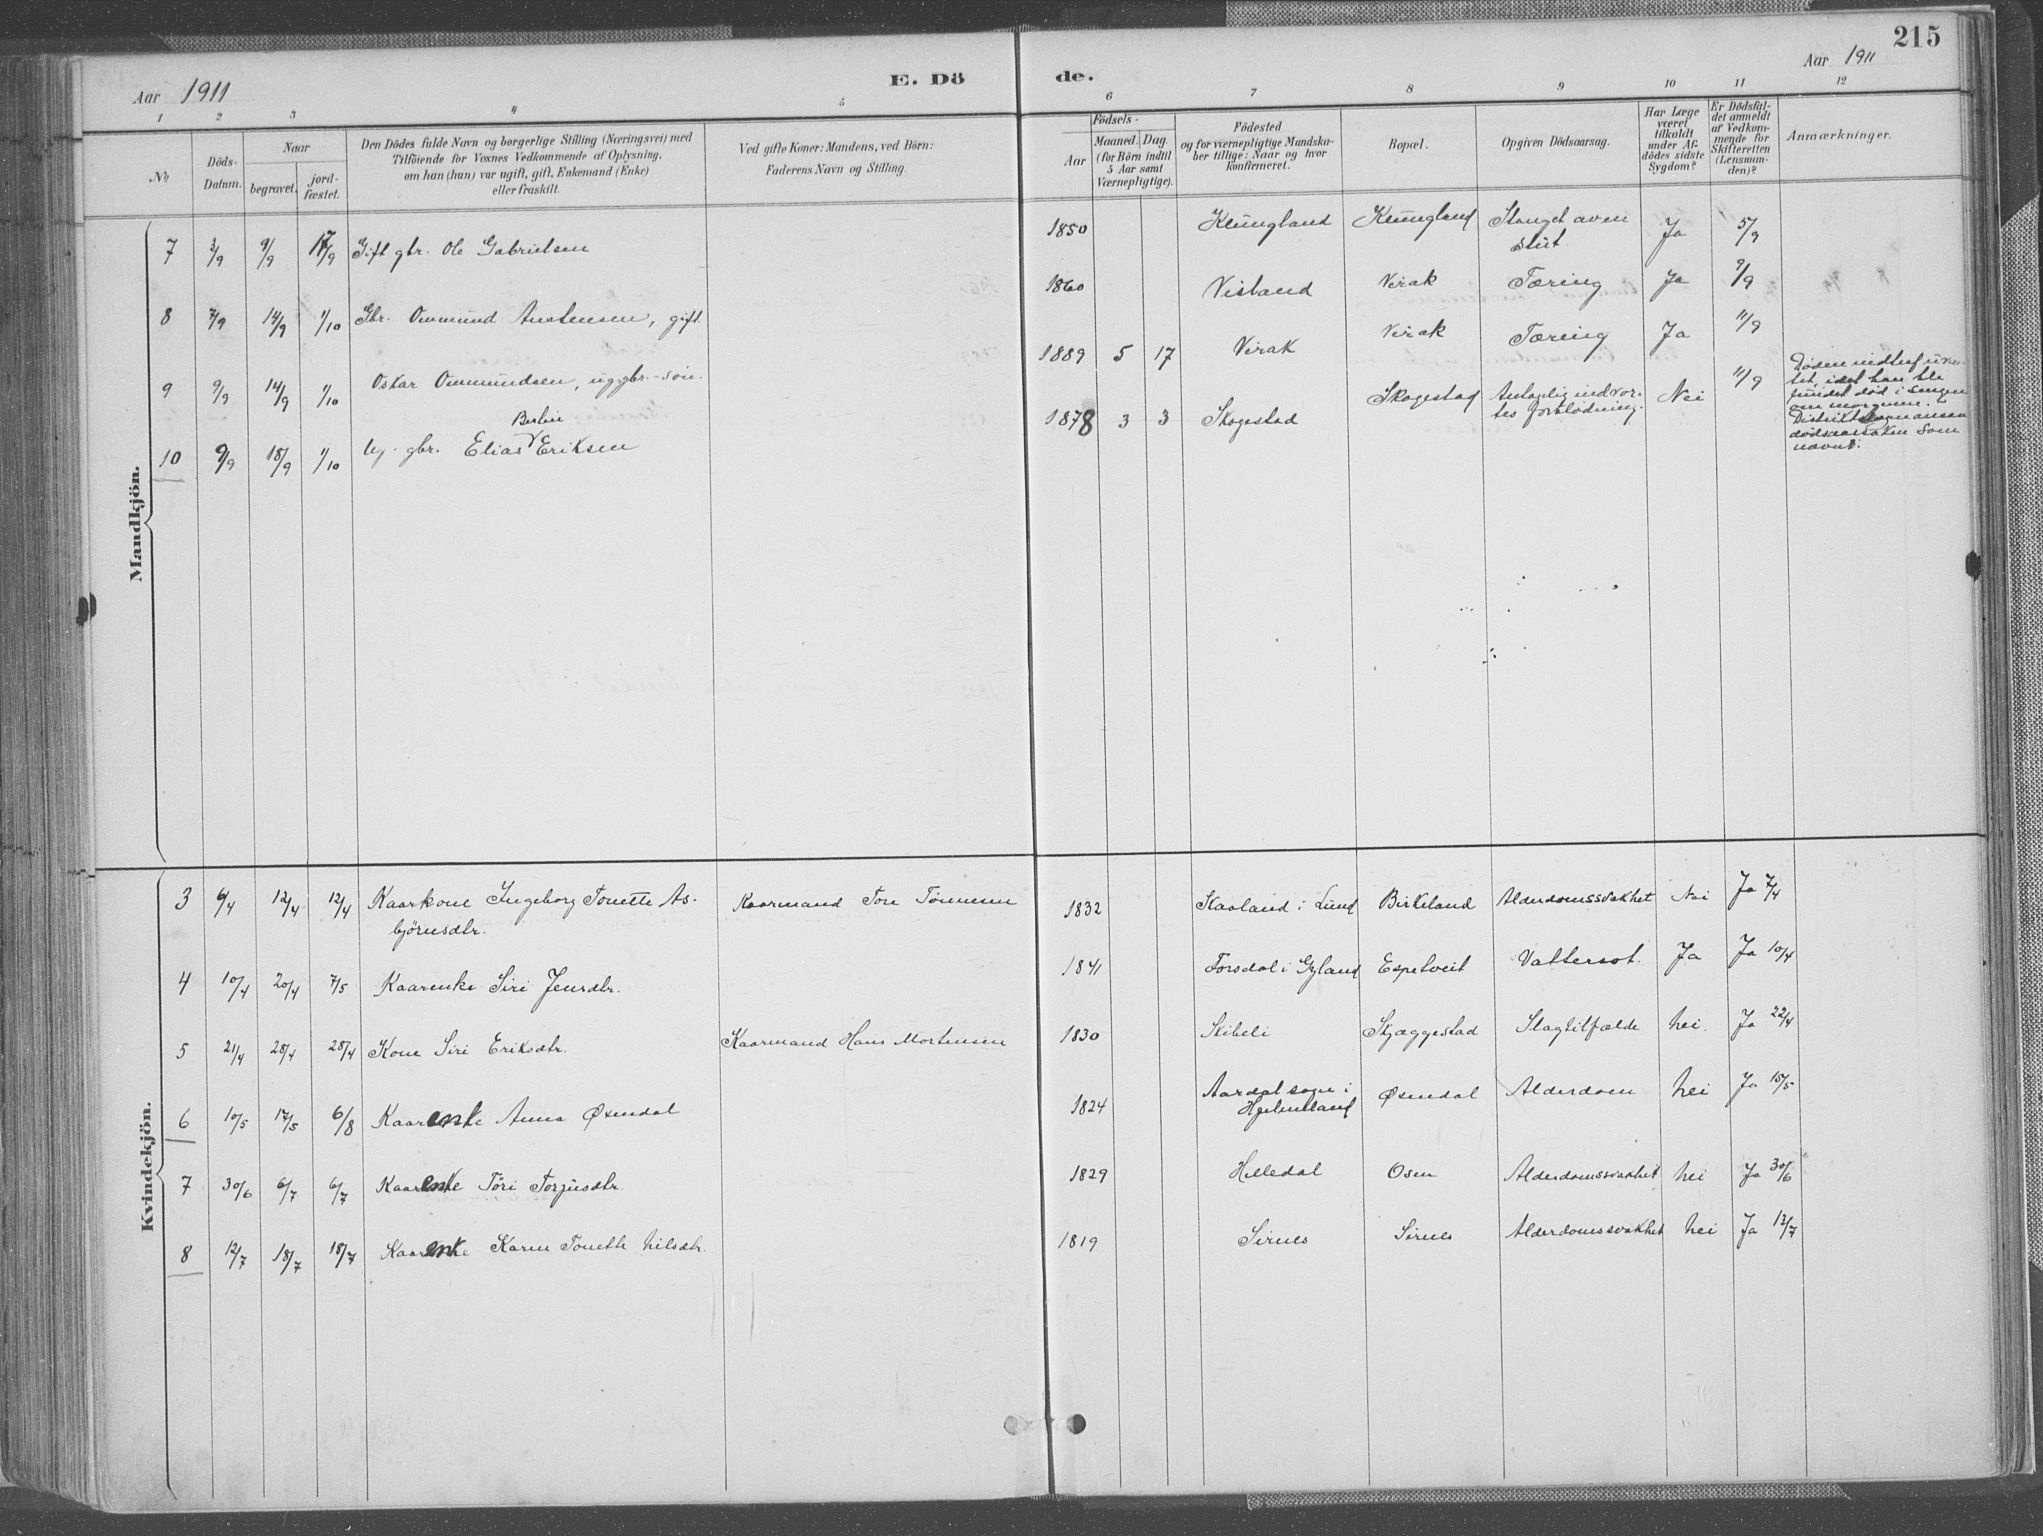 215
Aar 1911
E. Dö de.
Aar 1911
1 2 3 4 5 6 7 8 9 10 11 12
№
Döds-Datum.
Naar
begravet.
jord-fæstet.
Den Dödes fulde Navn og borgerlige Stilling (Næringsvei) med
Tilföiende for Voxnes Vedkommende af Oplysning,
om han (hun) var ugift, gift, Enkemand (Enke)
eller fraskilt.
Ved gifte Koner: Mandens, ved Börn:
Faderens Navn og Stilling.
Födsels-
Aar
Maaned. Dag.
(for Börn indtil
5 Aar samt
Værnepligtige).
Födested
og for værnepligtige Mandska-
ber tillige: Naar og hvor
konfirmeret.
Bopæl.
Opgiven Dödsaarsag.
Har Læge
været
tilkaldt
under Af-
dödes sidste
Sygdom?
Er Dödsfal-
det anmeldt
af Vedkom-
mende for
Skifteretten
(Lensman-
den)?
Anmærkninger.
Mandkjön.
7 3/9 9/9 17/9 Gift gbr. Ole Gabrielsen 1850 Klungland Klungland Stanget av en stut. Ja 5/9
8 7/9 14/9 1/10 Gbr. Ommund Austensen, gift. 1860 Visland Virak Tæring Ja 9/9
9 9/9 14/9 1/10 Oskar Ommundsen, ug. gbr.-søn. 1889 5 17 Virak Virak Tæring Ja 11/9
10 9/9 18/9 1/10 Ug. gbr. Elias Berlin Eriksen 1878 3 3 Skogestad Skogestad Antagelig indvor-tes forblødning. Nei 11/9
Døden indtraf uven-
tet, idet han ble
fundet død i sengen
om morgenen.
dødsaarsaken som
nævnt.
Kvindekjön.
3 6/4 12/4 12/4 Kaarkone Ingeborg Tonette As-bjørnsdtr. Kaarmand Tore Tønnesen 1832 Skaaland i Lund Birkeland Alderdomssvakhet Nei Ja 7/4
4 10/4 20/4 7/5 Kaarenke Siri Jensdtr. 1841 Torsdal i Gyland Espetveit Vattersot. Ja Ja 10/4
5 21/4 28/4 28/4 Kone Siri Eriksdtr. Kaarmand Hans Mortensen 1830 Skibeli Skjæggestad Slagtilfælde Nei. Ja 22/4
6 10/5 17/5 6/8 Kaarenke Anna Øsendal 1824 Aardal sogn i Hjelmeland Øsendal Alderdom Nei Ja 15/5
7 30/6 6/7 6/7 Kaarenke Tøri Torjusdtr. 1829 Helledal Osen Alderdomssvakhet Nei Ja 30/6
8 12/7 18/7 18/7 Kaarenke Karen Tonette Nilsdtr. 1819 Sirnes Sirnes Alderdomssvakhet Nei Ja 13/7